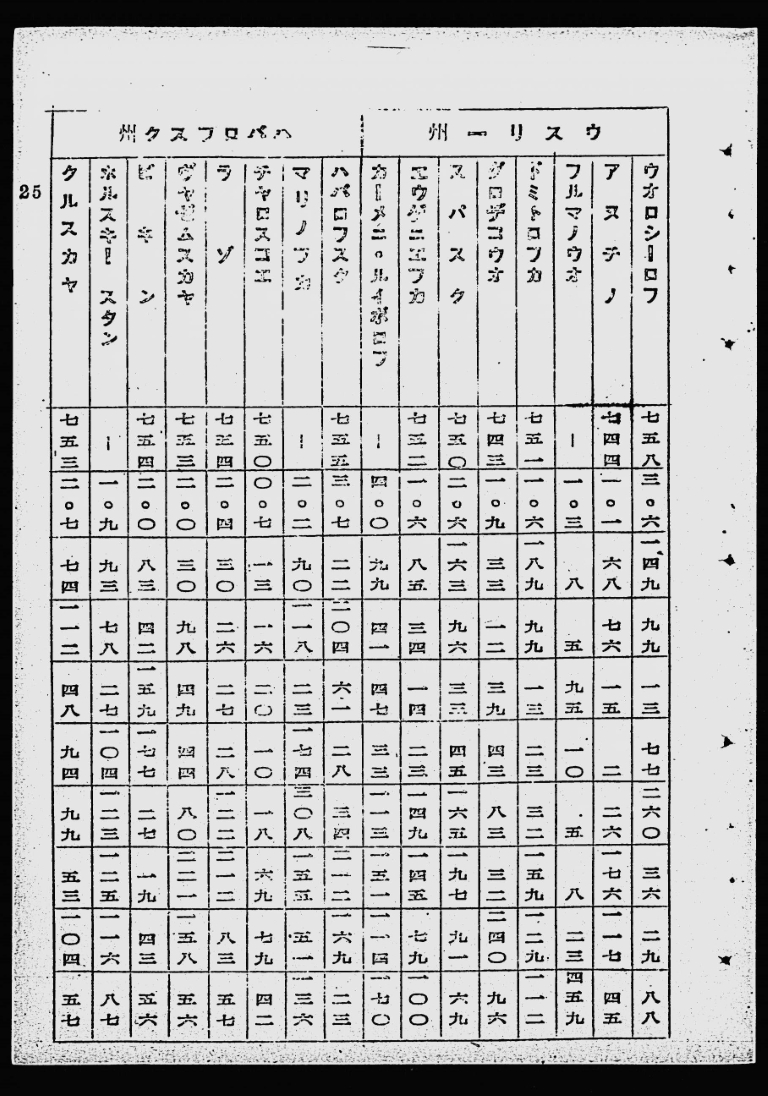 ウスリー州
ウオロシーロフ 七五八 三。六 一四九 九九 一三 七七 二六〇 三六 二九 八八
アヌチノ 七四四 一。一 六八 七六 一五 二 二六 一七六 一一七 四五
フルマノウオ ー 一。三 八 五 九五 一〇 五 八 二三 四五九
ドミトロフカ 七五一 一。六 一八九 九九 一三 二三 三二 一五九 一二九 一一二
グロデコウオ 七四三 一。九 三三 一二 三九 四三 八三 三二 二四〇 九六
スパスク 七五〇 二。六 一六三 九六 三三 四五 一六五 一九七 九一 六九
エウゲニエフカ 七五二 一。六 八五 三四 一四 二三 一四九 一四五 七九 一〇〇
カーメニ。ルイボロフ ー 四。〇 九九 四一 四七 三三 一一三 一五一 一一四 一七〇
ハバロフスク州
ハバロフスク 七五五 三。七 二二 二〇四 六一 二八 三四 二一二 一六九 二三
マリノフカ ー 二。二 九〇 一一八 二三 一七四 三〇八 一五五 五一 一三六
チャロスコエ 七五〇 〇。七 一三 一六 二〇 一〇 一八 六九 七九 四二
ラゾ 七五四 二。四 三〇 二六 二七 二八 一二二 二一二 八三 五七
ヴャゼムスカヤ 七五三 二。〇 三〇 九八 四九 四四 八〇 二二一 一五八 五六
ビキン 七五四 二。〇 八三 四二 一五九 一七七 二七 一九 四三 五六
ホルスキー スタン ー 一。九 九三 七八 二七 一〇四 一二三 一二五 一一六 八七
クルスカヤ 七五三 二。七 七四 一一二 四八 九四 九九 五三 一〇四 五七
25